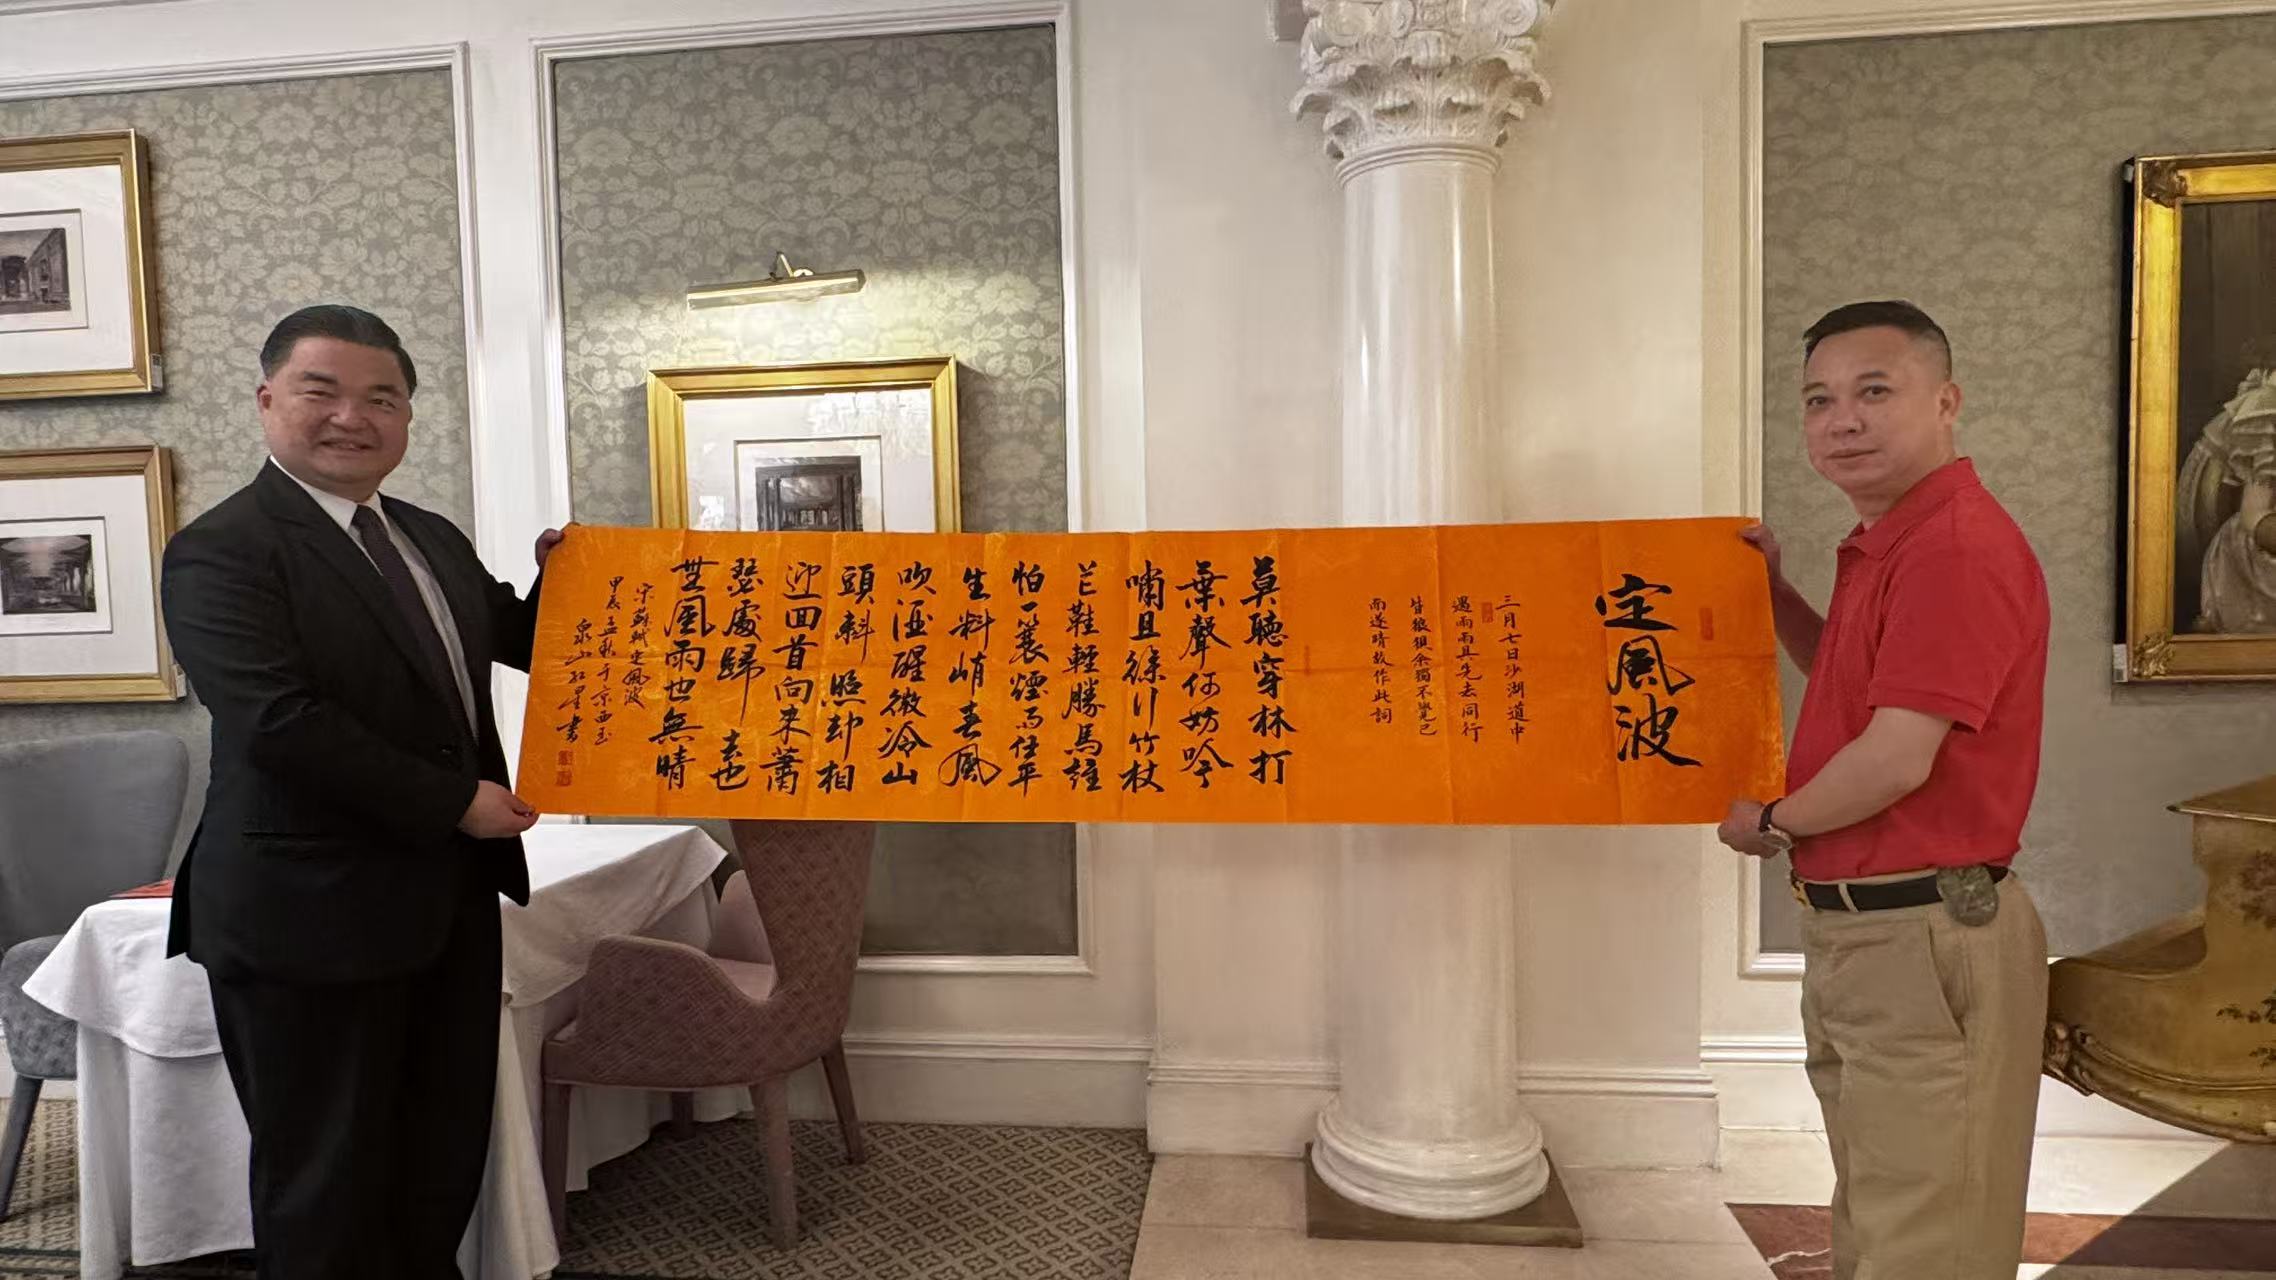 定風波
三月七日沙湖道中
遇雨雨具先去同行
皆狼狽余獨不覺已
而遂晴故作此詞
莫聽穿林打
葉聲何妨吟
嘯且徐行竹杖
芒鞋輕勝馬誰
怕一蓑煙雨任平
生料峭春風
吹酒醒微冷山
頭斜照却相
迎回首向來蕭
瑟處歸去也
無風雨也無晴
宋蘇軾定風波
甲辰孟秋于京西玉
泉山紅星書